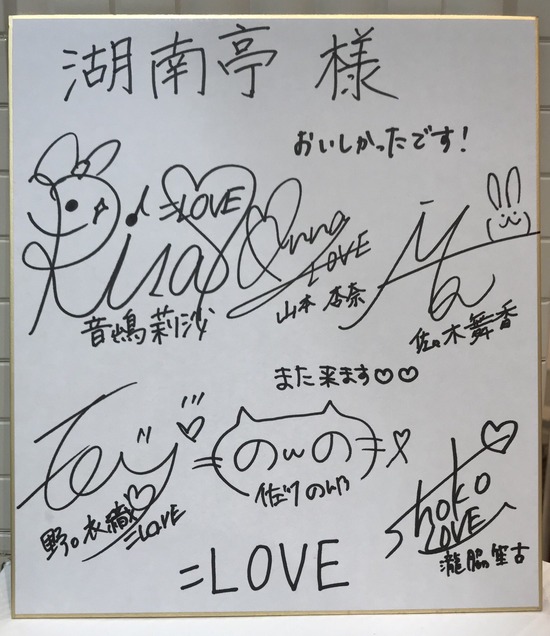 湖南亭 様
おいしかったです!
Risa
=LOVE
音嶋莉沙
Anna
LOVE
山本 杏奈
佐々木舞香
また来ます♡♡
野口衣織
=LOVE
のωの
佐竹のん乃
shoko
LOVE
瀧脇笙古
=LOVE